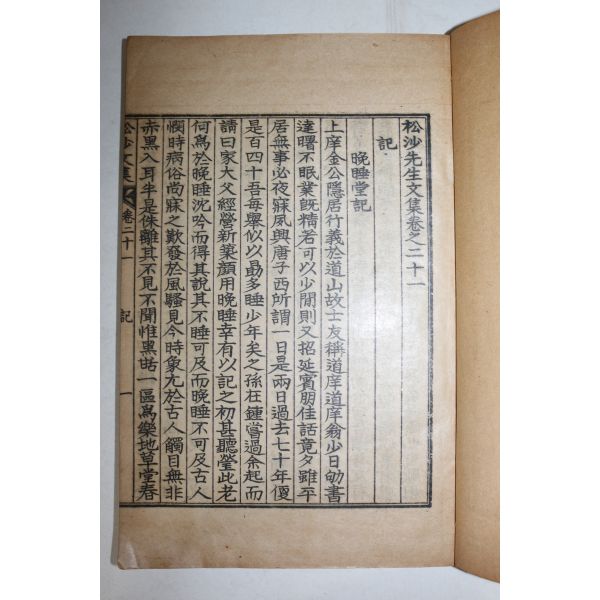 松沙先生文集卷之二十一
記
晚睡堂記
上庠金公隱居行義於道山故士友稱道庠道庠翁少日劬書
達曙不眠業旣精若可以少閒則又招延賓朋佳話竟夕雖平
居無事必夜寐夙興唐子西所謂一日是兩日過去七十年便
是百四十吾每舉似以勖多睡少年矣之孫在鍾嘗過余起而
請曰家大父經營新築顏用晚睡幸有以記之初甚聽瑩此老
何爲於晚睡沈吟而得其說其不睡可及而晚睡不可及古人
憫時病俗尚寐之歎發於風騷見今時象尤於古人觸目無非
赤黑入耳半是侏離其不見不聞惟黑甜一區爲樂地草堂春
松沙文集
卷二十一
記
一